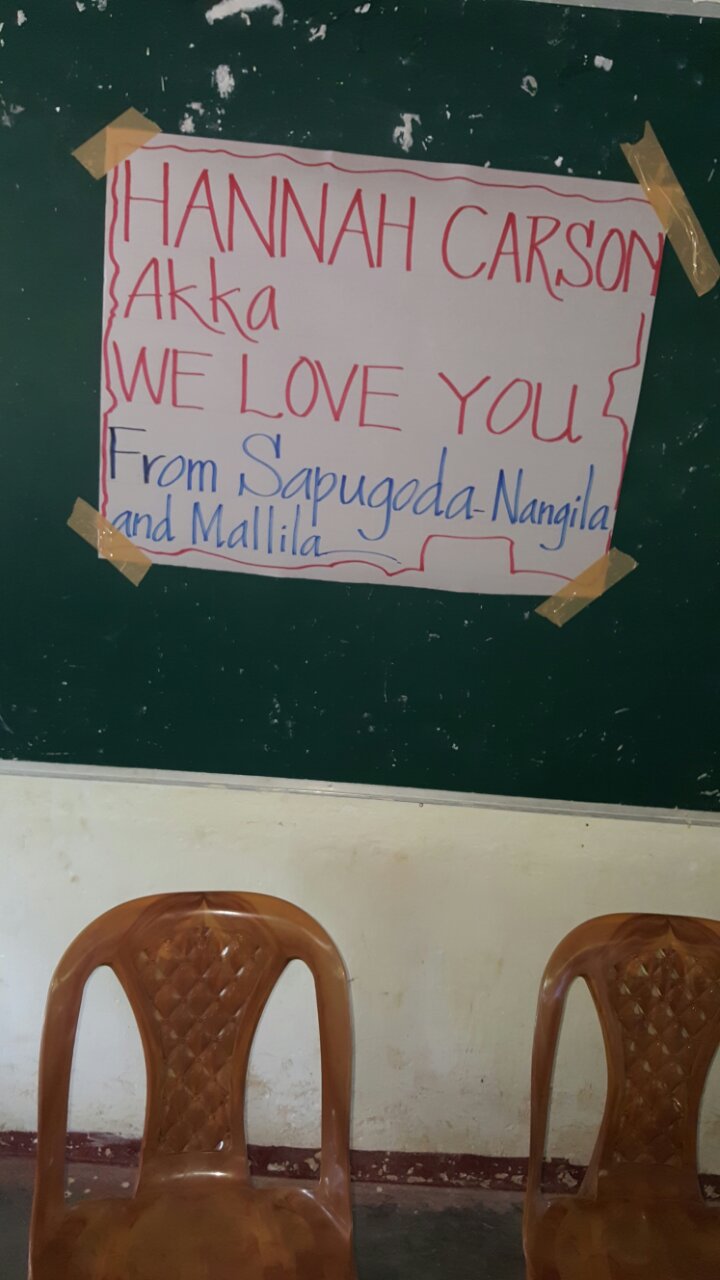 HANNAH CARSON
Akka
WE LOVE YOU
From Sapugoda-Nangila
and Mallila